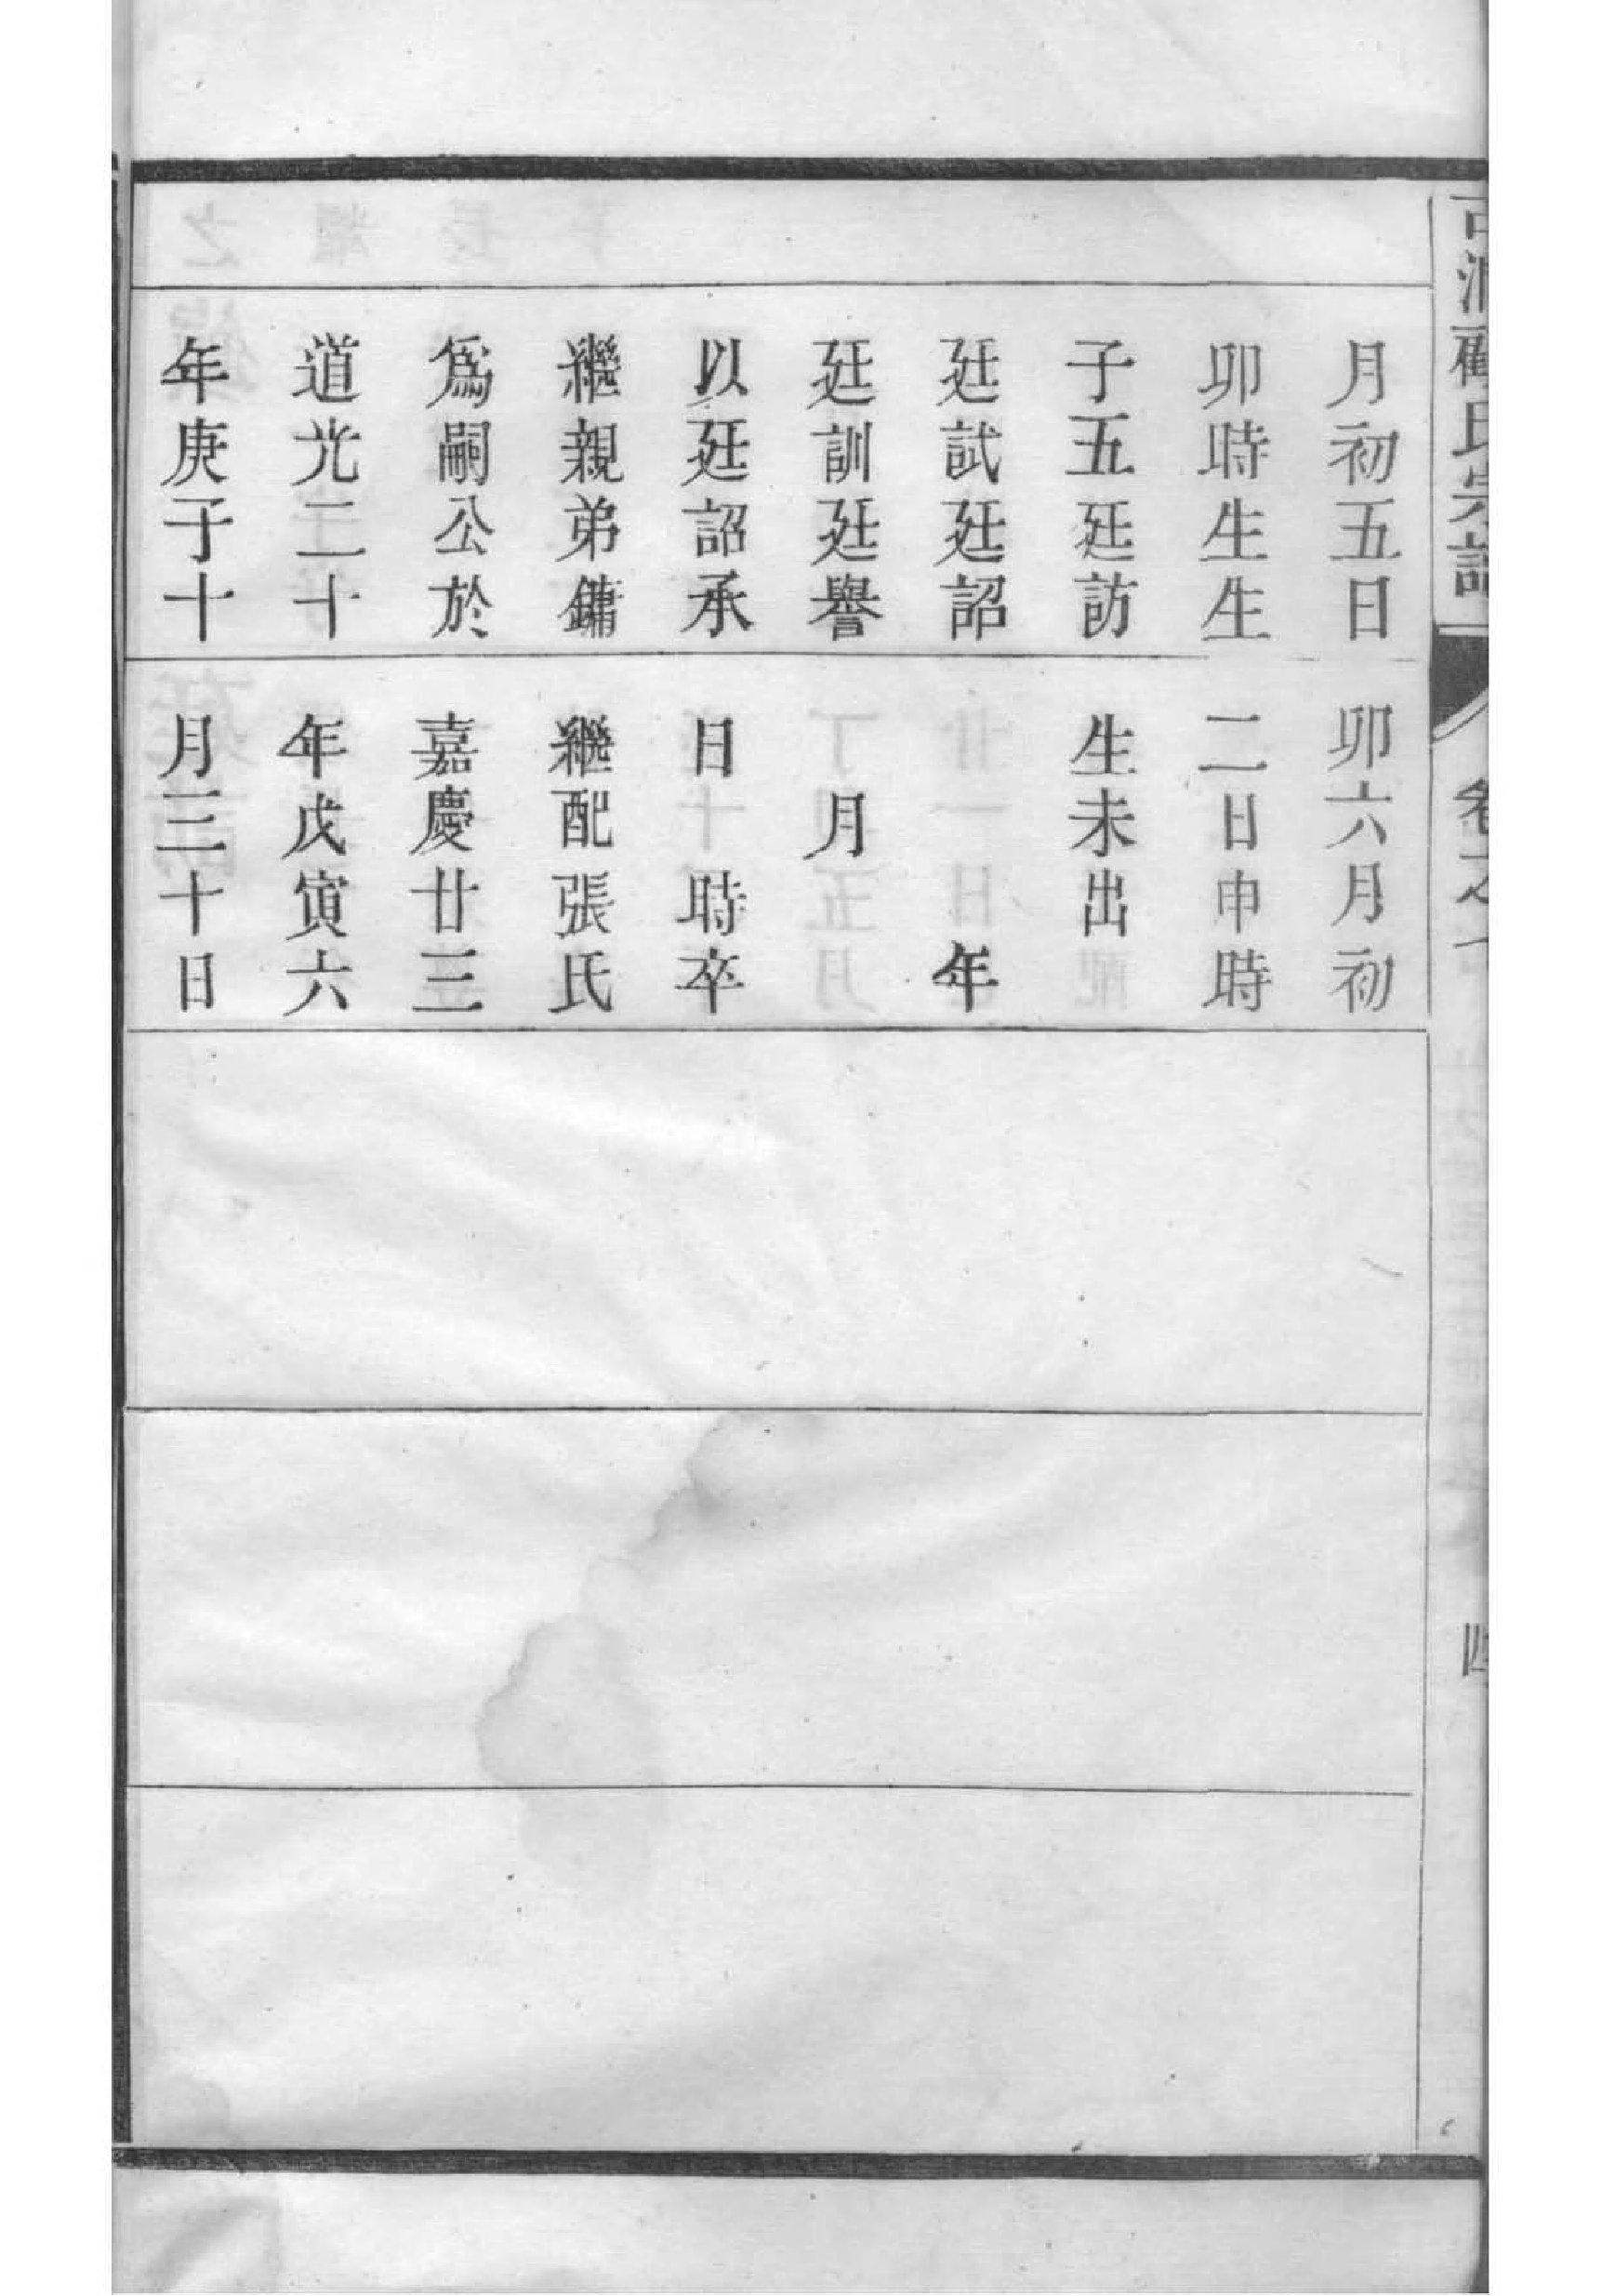 氏宗譜
卷之
月初五日
卯時生生
子五廷訪
廷試廷詔
廷訓廷譽
以廷詔承
繼親弟鏞
爲嗣公於
道光二十
年庚子十
卯六月初
二日申時
生未出
年
月
日時卒
繼配張氏
嘉慶廿三
年戊寅六
月三十日